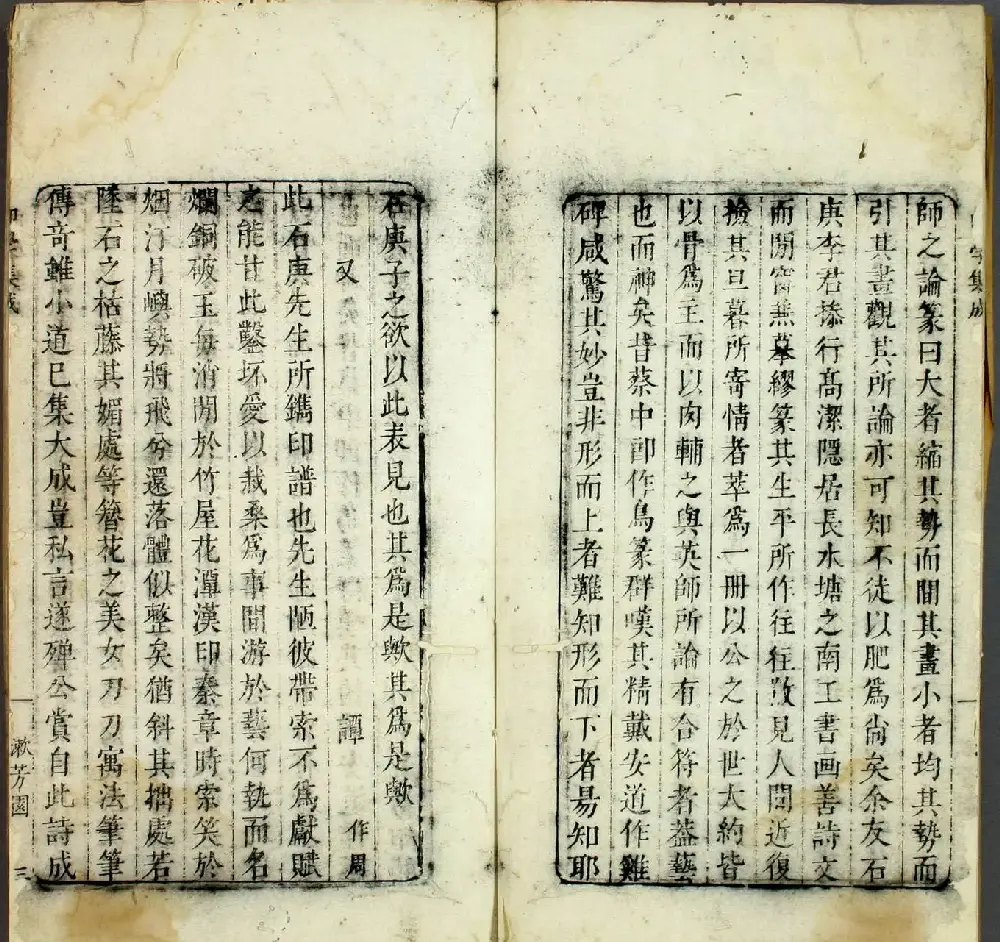 字集成
師之論篆曰大者縮其勢而間其畫小者均其勢而
引其畫觀其所論亦可知不徒以肥爲尚矣余友石
庚李君搽行高潔隱居長水塘之南工書画善詩文
而閒窗無摹繆篆其生平所作往往散見人間近復
撿其旦暮所寄情者萃爲一冊以公之於世大約皆
以骨爲主而以肉輔之與英師所論有合符者葢藝
也而神矣昔蔡中郎作鳥篆群嘆其精戴安道作雞
碑咸驚其妙豈非形而上者難知形而下者易知耶
石庚子之欲以此表見也其爲是歟其爲是歟
又 譚 作周
此石庚先生所鐫印譜也先生陋彼帶索不爲獻賦
之能甘此鑿坏愛以栽桑爲事間游於藝何執而名
爛銅破玉每消閒於竹屋花潭漢印秦章時索笑於
烟汀月嶼勢將飛兮還落體似整矣猶斜其拙處若
墜石之枯藤其媚處等簪花之美女刀刀寓法筆筆
傳奇雖小道已集大成豈私言遂殫公賞自此詩成
集成
漱芳園
三